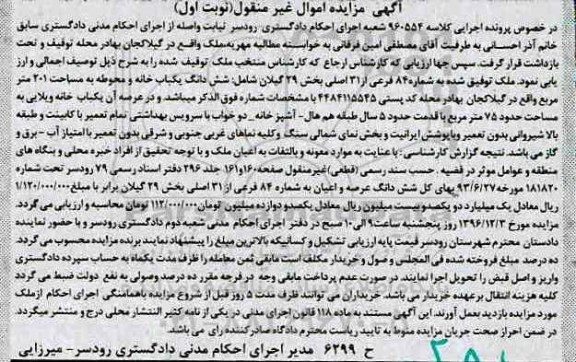 آگهی مزایده اموال غیر منقول(نوبت اول)
در خصوص پرونده اجرایی کلاسه ۹۶۰۵۵۴ شعبه اجرای احکام دادگستری رودسر نیابت واصله از اجرای احکام مدنی دادگستری سابق
خانم آذر احسانی به طرفیت آقای مصطفی امین فرقانی به خواسته مطالبه مهریه ملک واقع در گیلاکجان بهادر محله توقیف و تحت
بازداشت قرار گرفت. سپس جهت ارزیابی که کارشناس ارجاع که کارشناس منتخب ملک توقیف شده را به شرح ذیل توصیف اجمالی و ارز
یابی نمود. ملک توقیق شده به شماره ۸۴ فرعی از ۳۱ اصلی بخش ۲۹ گیلان شامل: شش دانگ یکباب خانه و محوطه به مساحت ۲۰۱ متر
مربع واقع در گیلاکجان بهادر محله کد پستی ۴۴۸۴۱۱۵۵۴۵ با مشخصات شماره فوق الذکر میباشد. و در عرصه آن یکباب خانه ویلایی به
مساحت حدود ۷۵ متر مربع با قدمت حدود ۵ سال طبقه هم هال- آشپز خانه - دو خواب با سرویس بهداشتی تمام تعمیر با کابینت و طبقه
بالا شیروانی بدون تعمیر و با پوشش ایرانیت و بخش نمای شمالی سنگ و کلیه نماهای غربی جنوبی و شرقی بدون تعمیر با امتیاز آب - برق و
گاز می باشد. نتیجه گزارش کارشناسی : با عنایت به موارد معونه و با التفات به اعیان ملک و با توجه تحقیق از افراد خبره محلی و بنگاه های
منطقه و عوامل موثر در قضیه . حسب سند رسمی (قطعی)غیر منقول صفحه ۱۶۰و۱۶۱ جلد ۲۹۶ دفتر اسناد رسمی ۷۹ رودسر تحت شماره
۱۸۱۸۲۰ مورخه ۹۳/۶/۲۷ بهای کل شش دانگ عرصه و اعیان به شماره ۸۴ فرعی از ۳۱ اصلی بخش ۲۹ گیلان برابر با مبلغ ۱/۱۲۰/۰۰۰/۰۰۰
ریال معادل یک میلیارد دو یکصد و بیست میلیون ریال معادل یکصد و دوازده میلیون تومان ۱۱۲/۰۰۰/۰۰۰ تومان محاسبه و ارزیابی می گردد.
مزایده مورخ ۱۳۹۶/۱۲/۳ روز پنجشنبه ساعت ۹ الی ۱۰ صبح در دفتر اجرای احکام مدنی شعبه دوم دادگستری رودسر و با حضور نماینده
دادستان محترم شهرستان رودسر قیمت پایه ارزیابی تشکیل و کسانیکه بالاترین مبلغ را پیشنهاد نمایند برنده مزایده محسوب می گردد.
ده درصد مبلغ فروخته شده فی المجلس وصول و خریدار مکلف است مابقی ثمن معامله را ظرف مدت یکماه به حساب سپرده دادگستری
واریز و اصل قبض را تحویل اجرا نمایند. در صورت عدم پرداخت مابقی وجه در فرجه مقرر ده درصد وصولی به نفع دولت ضبط می گردد
کلیه هزینه انتقال بر عهده خریدار می باشد. خریداران می توانند ظرف مدت ۵ روز قبل از شروع مزایده باهماهنگی اجرای احکام از ملک
مورد مزایده بازدید بعمل آورند. این آگهی مستند به ماده ۱۱۸ قانون اجرای مدنی در یکی از نامه کثیر الانتشار محلی درج و منتشر میگردد.
در ضمن احراز صحت جریان مزایده منوط به تایید ریاست محترم دادگاه صادر کننده رای می باشد.
ح ۶۲۹۹ مدیر اجرای احکام مدنی دادگستری رودسر- میرزایی